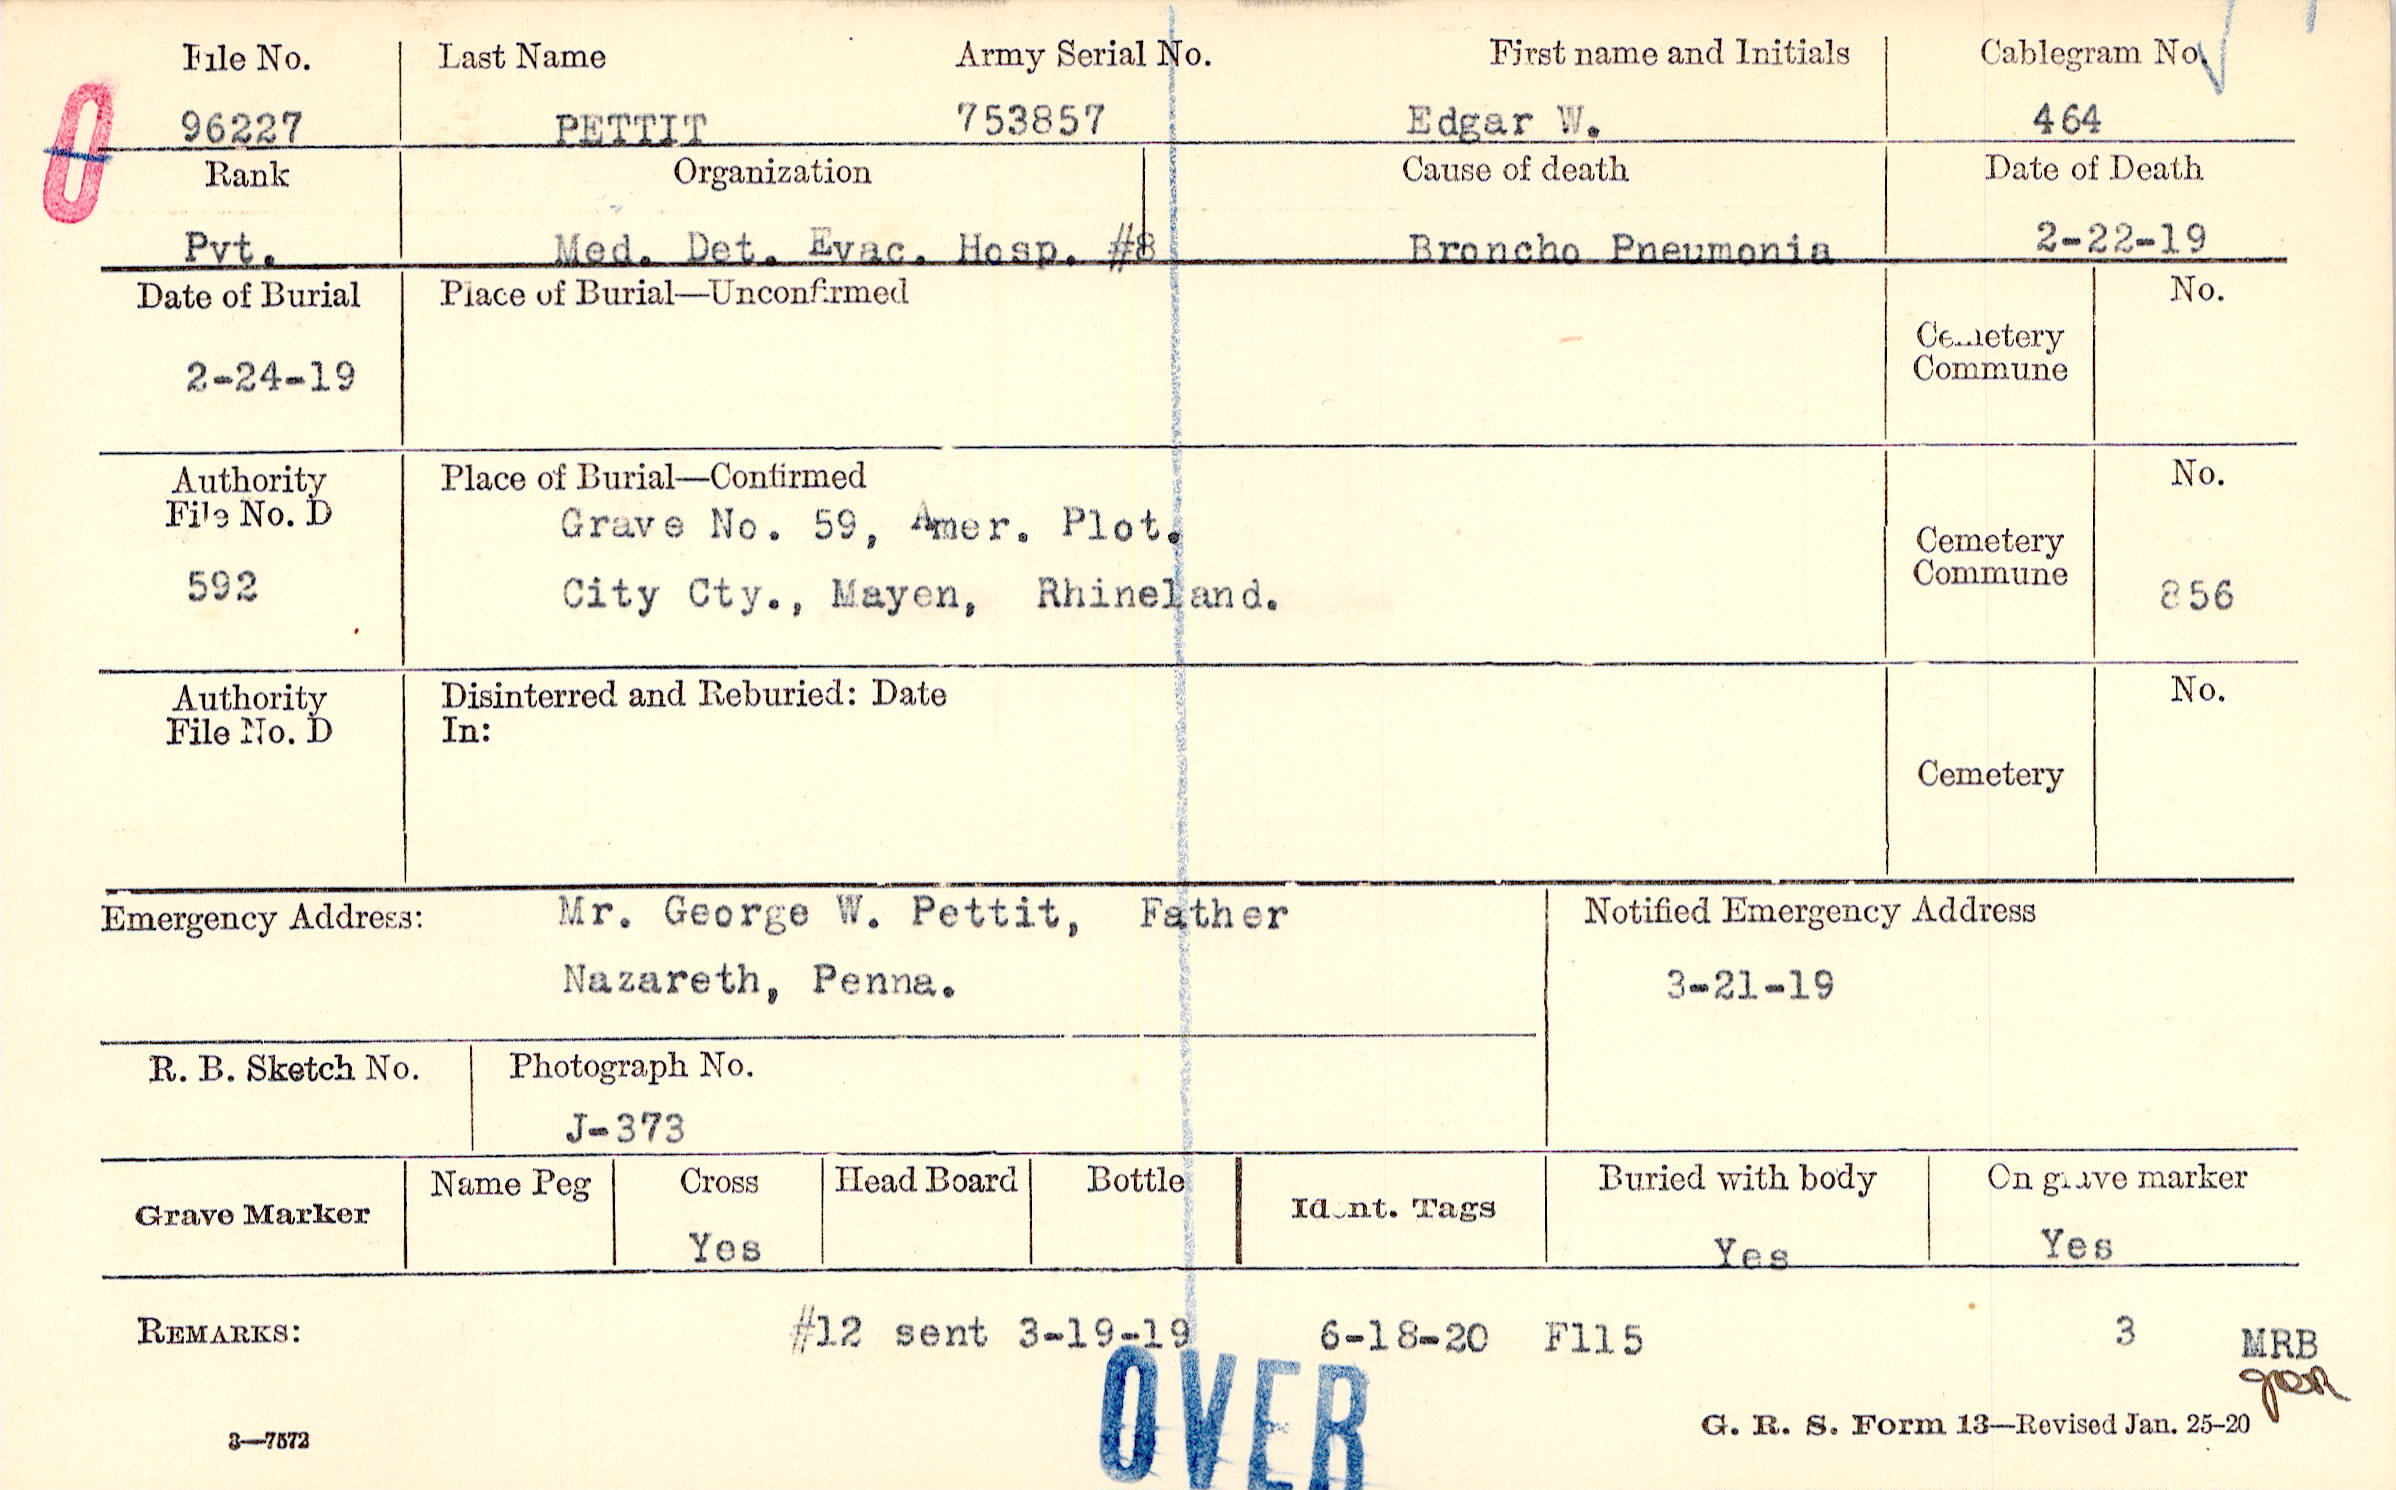 File No. Last Name Army Serial No. First name and Initials Cablegram No.
96227 PETTIT 753857 Edgar W. 464
Rank Organization Cause of death Date of Death
Pvt. Med. Det. Evac. Hosp. #8 Broncho Pneumonia 2-22-19
Date of Burial Place of Burial—Unconfirmed No.
Cemetery
Commune
2-24-19
Authority Place of Burial—Confirmed No.
File No. D
Grave No. 59, Amer. Plot.
Cemetery
Commune
592 City Cty., Mayen, Rhineland. 856
Authority Disinterred and Reburied: Date No.
File No. D In:
Cemetery
Emergency Address: Mr. George W. Pettit, Father Notified Emergency Address
Nazareth, Penna. 3-21-19
R. B. Sketch No. Photograph No.
J-373
Grave Marker Name Peg Cross Head Board Bottle Ident. Tags Buried with body On grave marker
Yes Yes Yes
REMARKS: #12 sent 3-19-19 6-18-20 F115 3 MRB
OVER
3—7572 G. R. S. Form 13—Revised Jan. 25-20